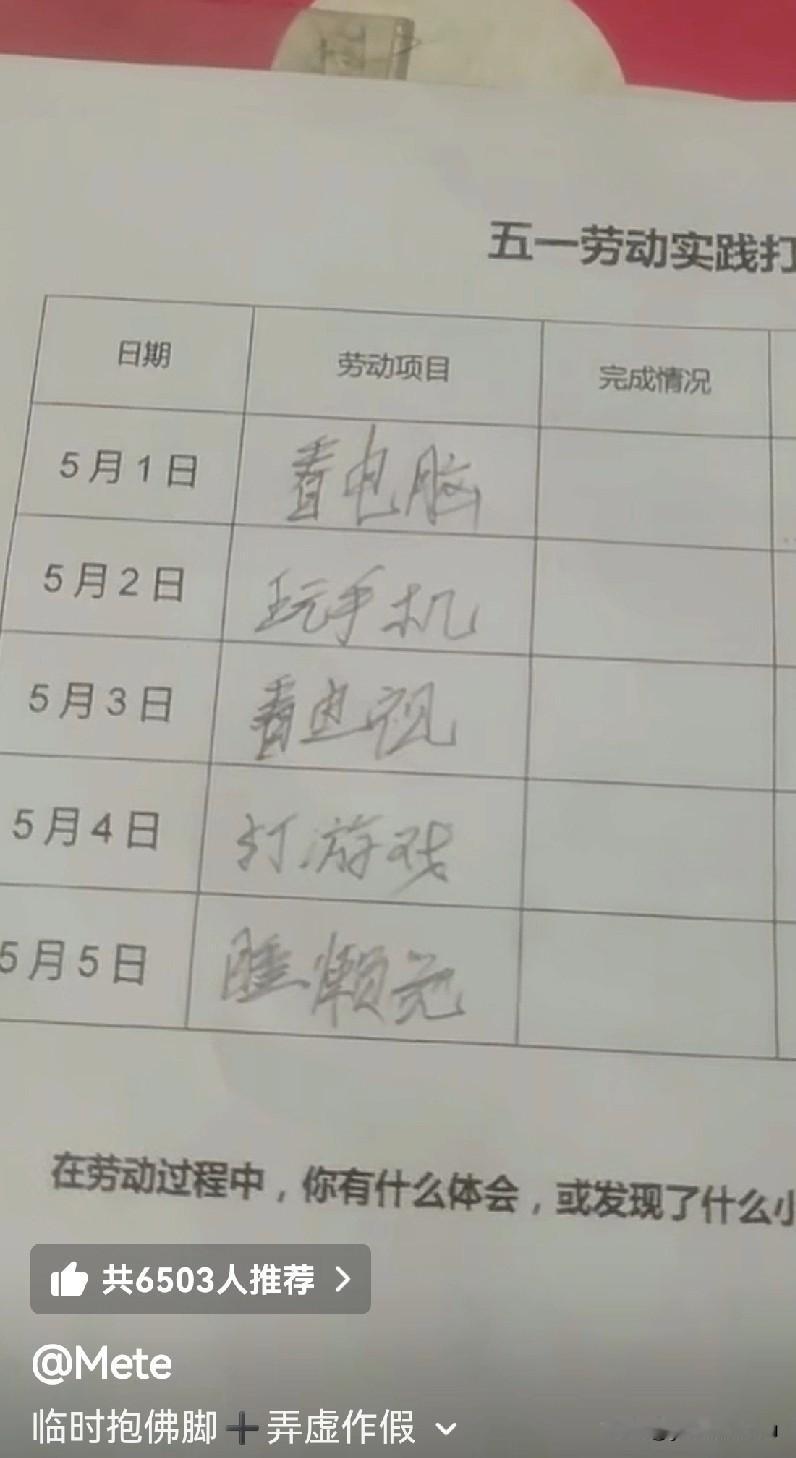 五一劳动实践打
日期 劳动项目 完成情况
5月1日 看电脑
5月2日 玩手机
5月3日 看电视
5月4日 打游戏
5月5日 睡懒觉
在劳动过程中，你有什么体会，或发现了什么小
共6503人推荐 >
@Mete
临时抱佛脚➕弄虚作假